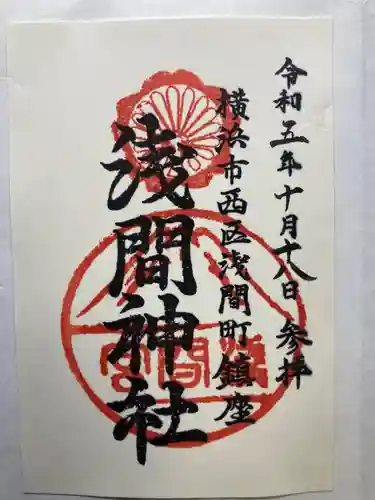 令和五年十月十八日 参拝
横浜市西区浅間町鎮座
浅間神社